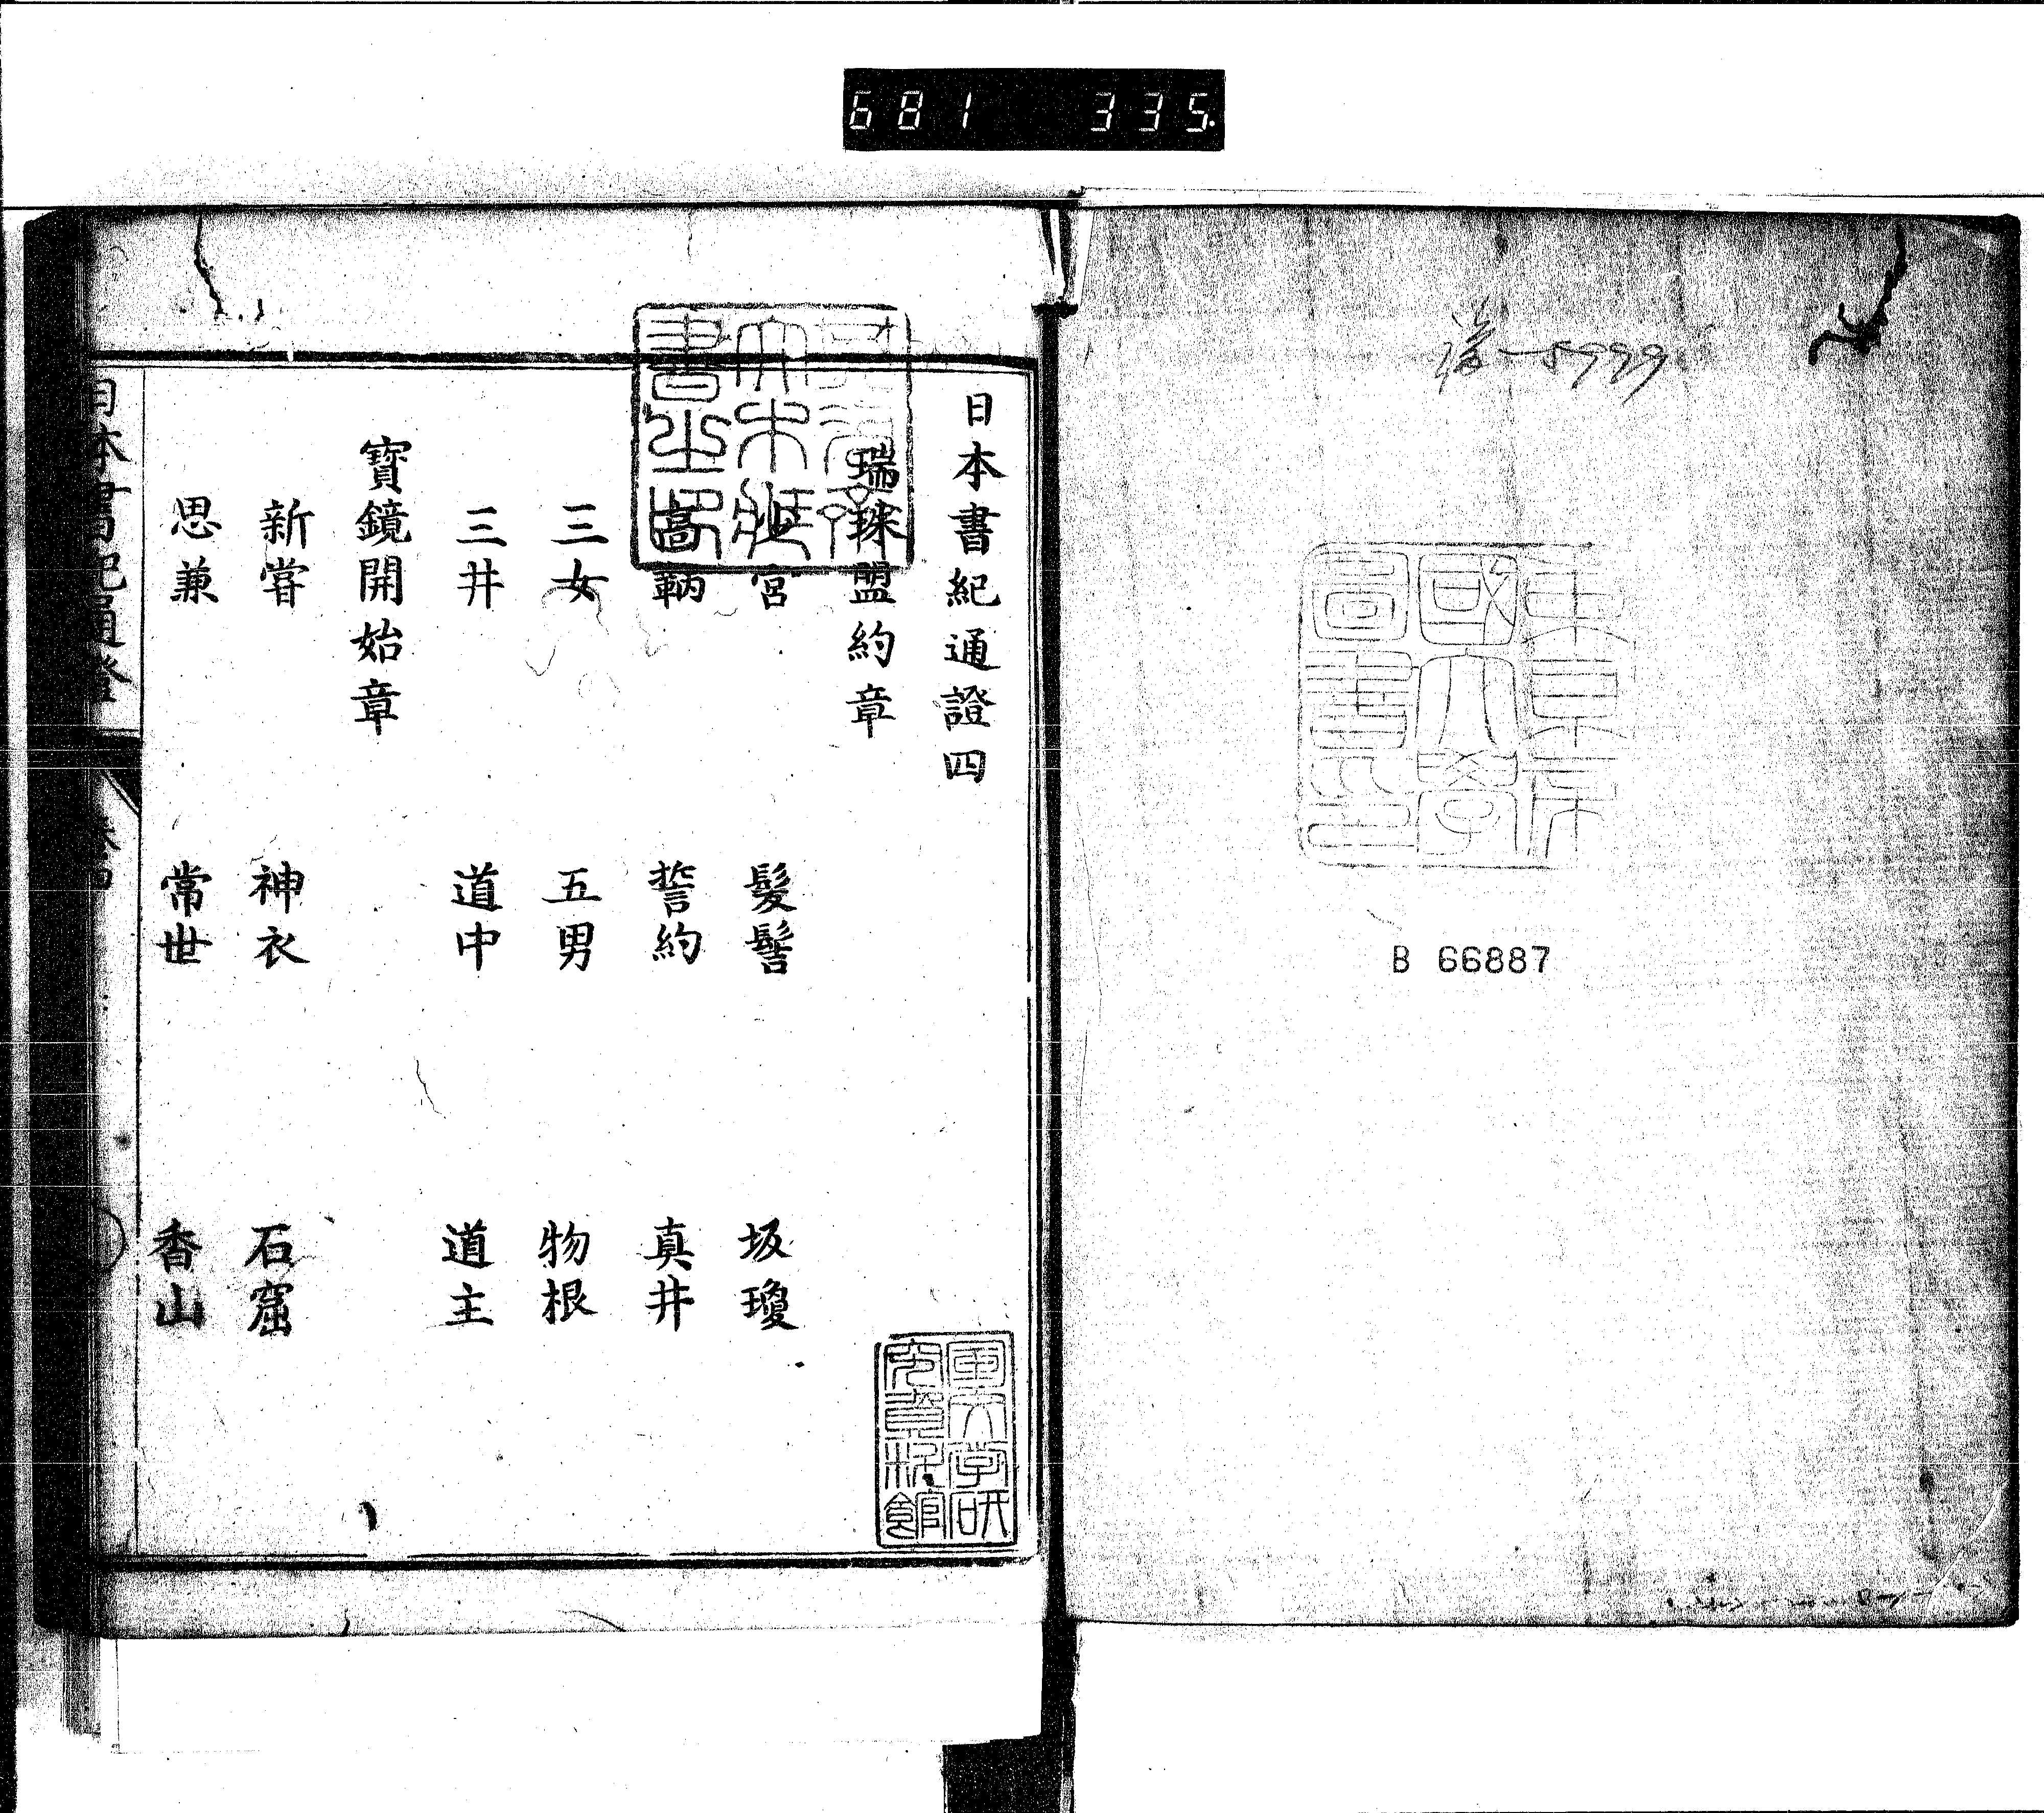 681 335
B 66887
東京帝國大學圖書印
日本書紀通證四
瑞珠盟約章
宮 髮髻 坂瓊
高鞆 誓約 真井
三女 五男 物根
三井 道中 道主
寶鏡開始章
新嘗 神衣 石窟
思兼 常世 香山
日本書紀通證